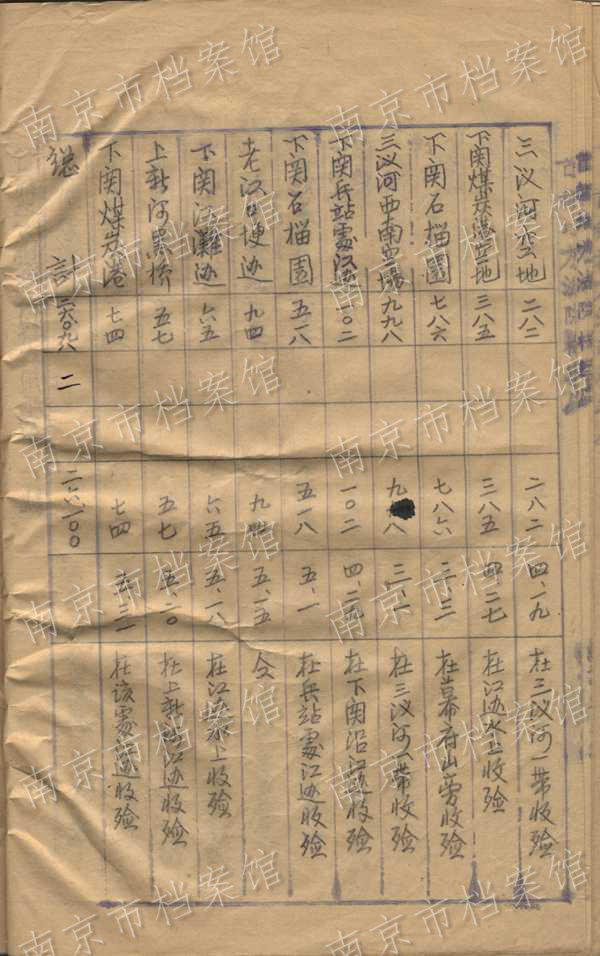 三汊河空地 二八二 二八二 四、一九 在三汊河一带收殓
下関煤炭港空地 三八五 三八五 四、二七 在江边水上收殓
下関石榴園 七八六 七八六 三、三 在幕府山旁收殓
三汊河西南空場 九九八 九 八 三、一 在三汊河一帶收殓
下関兵站處江边 一〇二 一〇二 四、二九 在下関沿江边收殓
下関石榴園 五一八 五一八 五、一 在兵站處江边收殓
老江口埂边 九四 九四 五、一五 仝
下関江灘边 六五 六五 五、一八 在江边水上收殓
上新河黑桥 五七 五七 五、二〇 在上新河江边收殓
下関煤炭港 七四 七四 五、三一 在该處江边收殓
總 計 二六〇九八 二 二六一〇〇
南京市档案馆